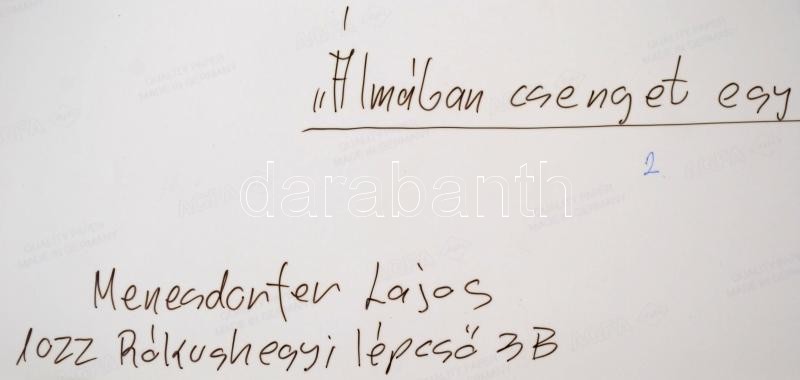 „Álmában csenget egy
2
darabanth
Menesdorfer Lajos
1022 Rókushegyi lépcső 3B
AGFA
QUALITY PAPER
MADE IN GERMANY